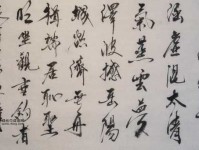 涵虚混太清
氣蒸雲夢
澤波撼岳陽
城欲濟無舟
楫端居恥聖
明坐觀垂釣者